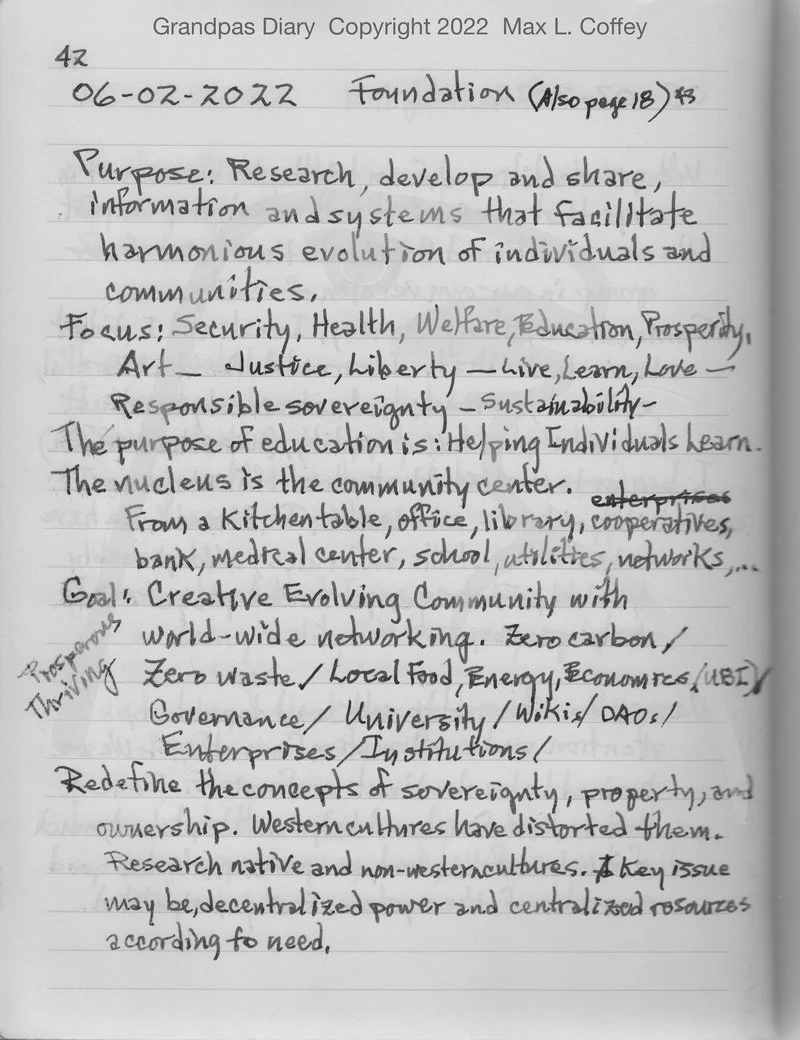 Grandpas Diary Copyright 2022 Max L. Coffey
42
06-02-2022 Foundation (Also page 18) 43
Purpose: Research, develop and share,
information and systems that facilitate
harmonious evolution of individuals and
communities.
Focus: Security, Health, Welfare, Education, Prosperity,
Art — Justice, Liberty — Live, Learn, Love —
Responsible sovereignty — Sustainability —
The purpose of education is: Helping Individuals Learn.
The nucleus is the community center. enterprises
From a Kitchen table, office, library, cooperatives,
bank, medical center, school, utilities, networks,...
Goal: Creative Evolving Community with
Prosperous
Thriving
world-wide networking. Zero carbon /
Zero waste / Local Food, Energy, Economies, (UBI) /
Governance / University / Wikis / DAOs /
Enterprises / Institutions /
Redefine the concepts of sovereignty, property, and
ownership. Western cultures have distorted them.
Research native and non-western cultures. A Key issue
may be, decentralized power and centralized resources
according to need.